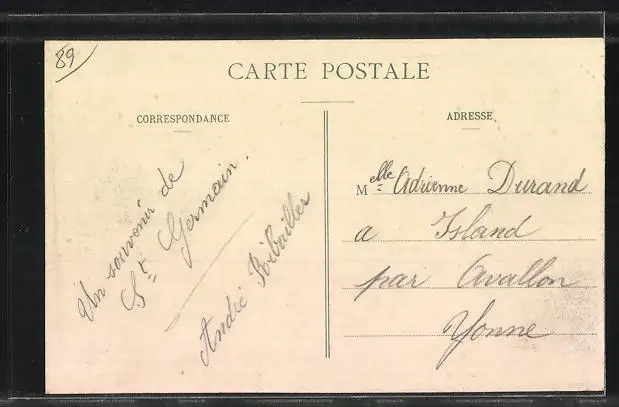 89
CARTE POSTALE
CORRESPONDANCE
Un souvenir de
St Germain.
André
ADRESSE
Melle Adrienne Durand
a Island
par Avallon
Yonne